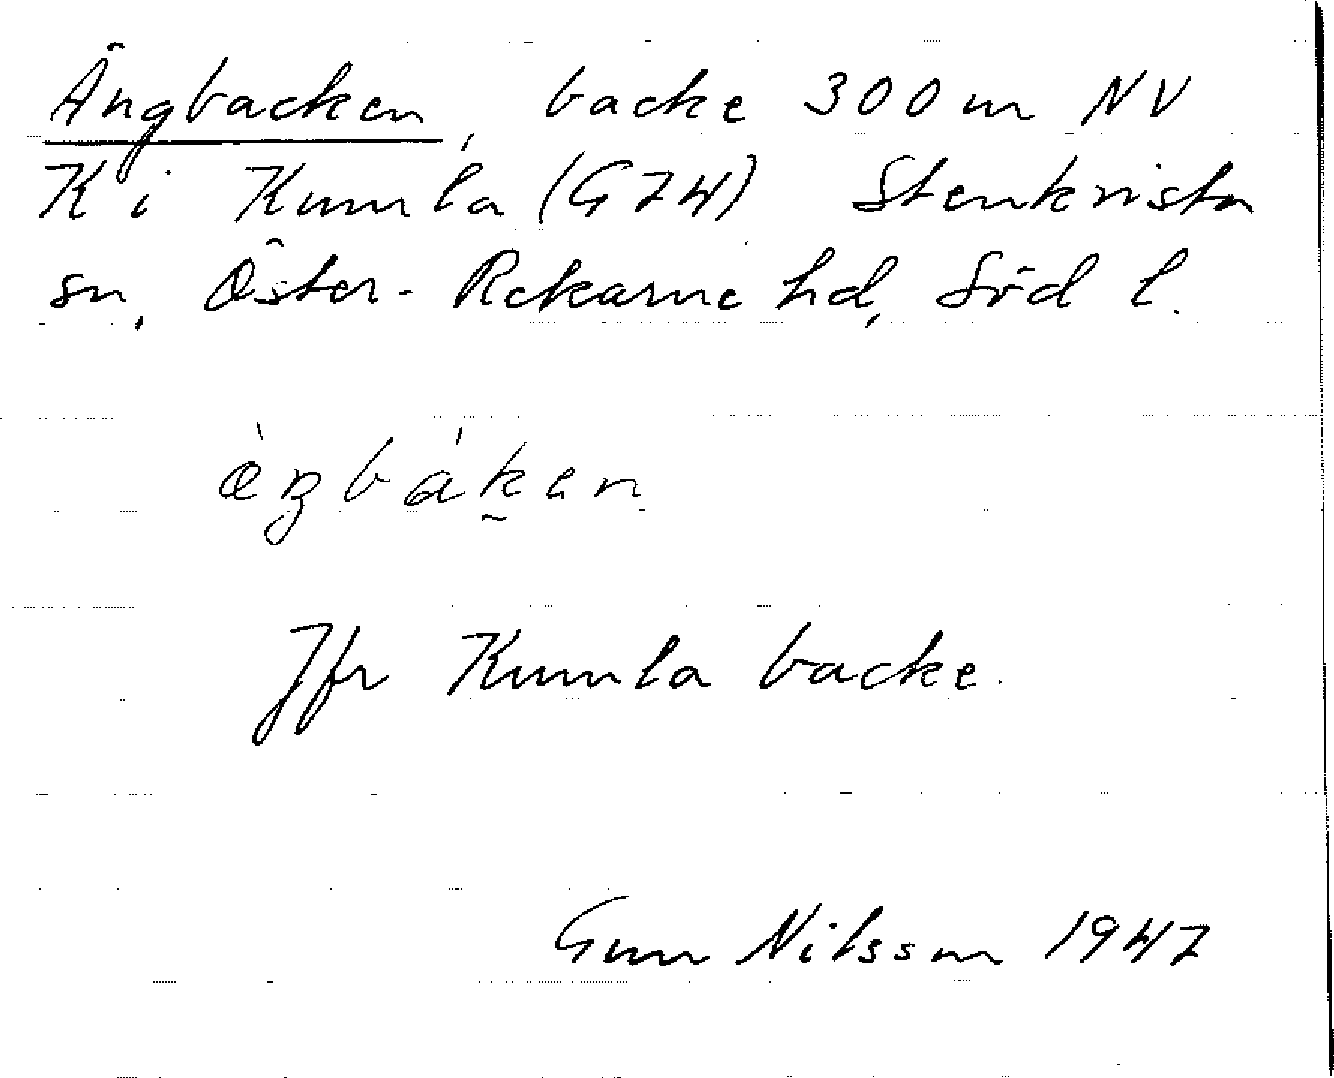 Ängbacken, backe 300 m NV
K i Kumla (G74) Stenkvista
sn, Öster-Rekarne hd, Söd l.
æ̀ŋbákan
Jfr Kumla backe.
Gun Nilsson 1947